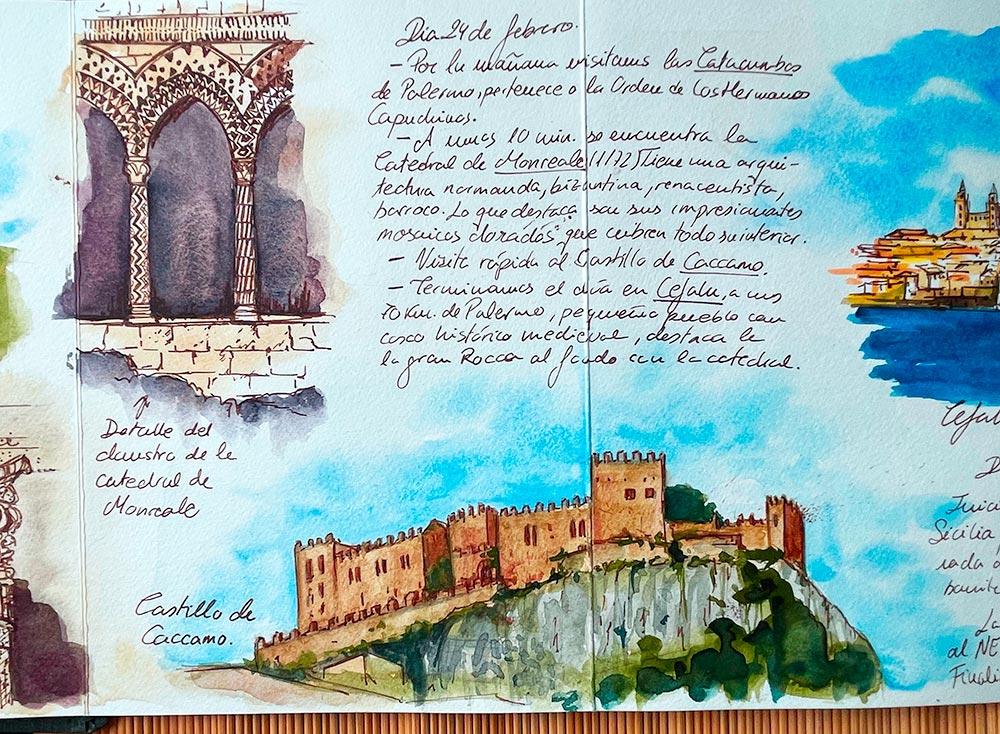 Dia 24 de febrero.
- Por la mañana visitamos las Catacumbas
de Palermo, pertenece a la Orden de Los Hermanos
Capuchinos.
- A unos 10 min. se encuentra la
Catedral de Monreale (1172) Tiene una arqui-
tectura normanda, bizantina, renacentista,
barroco. Lo que destaca son sus impresionantes
mosaicos "dorados" que cubren todo su interior.
- Visita rápida al Castillo de Caccamo.
- Terminamos el día en Cefalu, a uns
70 km. de Palermo, pequeño pueblo con
casco histórico medieval, destaca le
la gran Rocca al fondo con la catedral.
Detalle del
claustro de la
catedral de
Monreale
Castillo de
Caccamo.
Cefal
D
Inic
Sicilia
rada d
barrit
La
al NE
Finali